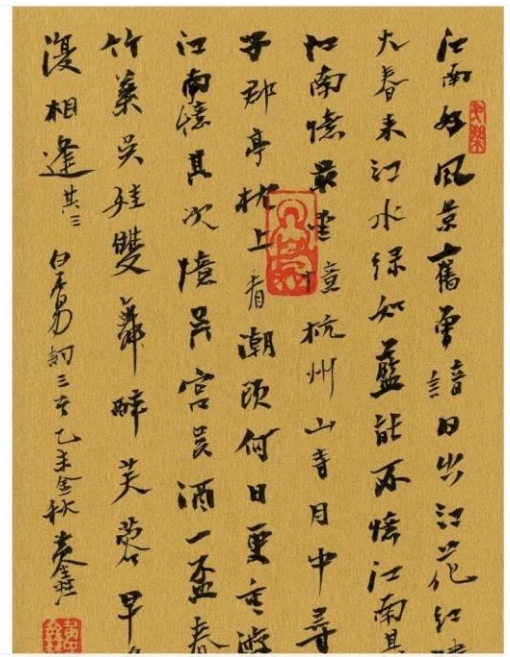 江南好風景舊曾諳日出江花紅勝
火春来江水绿如藍能不憶江南其
江南憶最是憶杭州山寺月中尋
子郡亭枕上看潮頭何日更重游
江南憶其次憶吴宫吴酒一盃春
竹葉吴娃雙舞醉芙蓉早
復相逢其三 白居易詞三首乙未金秋